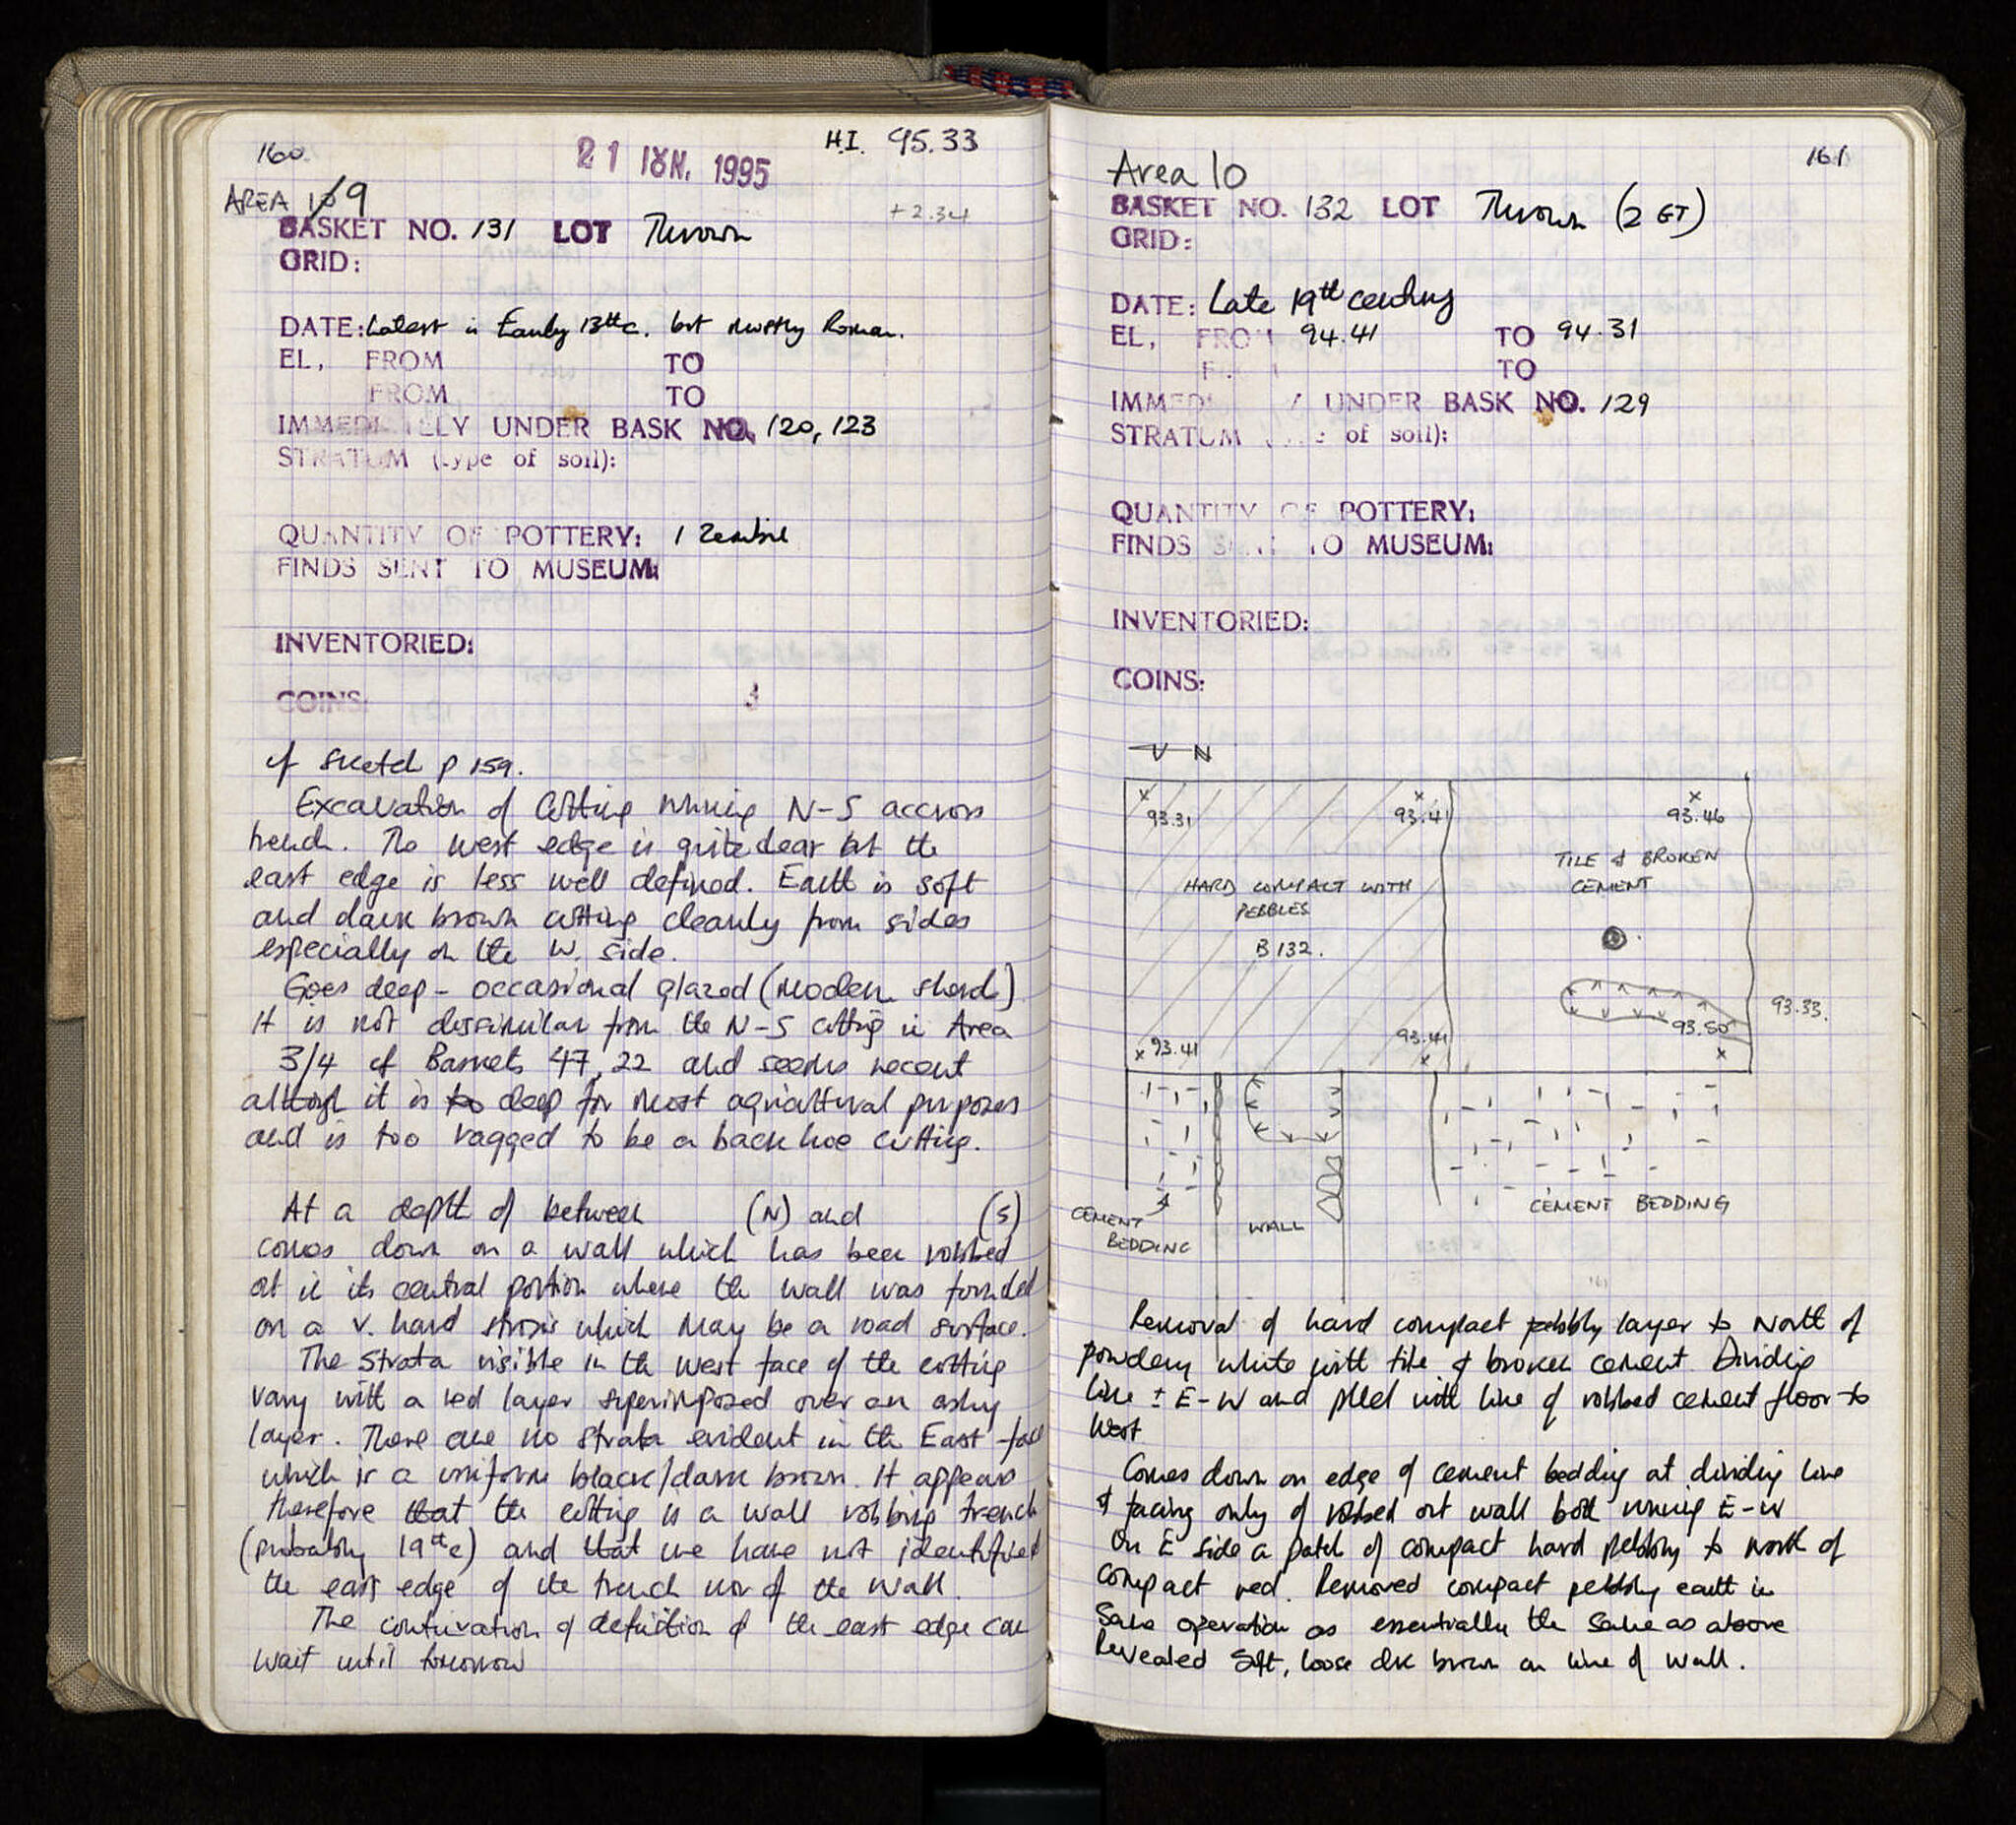 160.
21 IOYN. 1995
H.I. 95.33
AREA 9
+2.34
BASKET NO. 131 LOT Thrown
GRID:
DATE: Latest is Early 13th c. but mostly Roman.
EL, FROM TO
FROM TO
IMMEDIATELY UNDER BASK NO. 120, 123
STRATUM (type of soil):
QUANTITY OF POTTERY: 1 Zembil
FINDS SENT TO MUSEUM:
INVENTORIED:
COINS:
cf sketch p 159.
Excavation of cutting running N-S accross
trench. The west edge is quite clear but the
east edge is less well defined. Earth is soft
and dark brown cutting cleanly from sides
especially on the W. side.
Goes deep - occasional glazed (modern sherd)
It is not dissimilar from the N-S cutting in Area
3/4 cf Baskets 47, 22 and seems recent
although it is too deep for most agricultural purposes
and is too ragged to be a back hoe cutting.
At a depth of between (N) and (S)
comes down on a wall which has been robbed
out in its central portion where the wall was founded
on a v. hard strosis which may be a road surface.
The strata visible in the west face of the cutting
vary with a red layer superimposed over an ashy
layer. There are no strata evident in the East face
which is a uniform black/dark brown. It appears
therefore that the cutting is a wall robbing trench
(probably 19th c) and that we have not identified
the east edge of the trench nor of the wall.
The continuation of definition of the east edge can
wait until tomorrow
161
Area 10
BASKET NO. 132 LOT Thrown (2 GT)
GRID:
DATE: Late 19th century
EL, FROM 94.41 TO 94.31
TO
IMMEDIATELY UNDER BASK NO. 129
STRATUM (type of soil):
QUANTITY OF POTTERY:
FINDS SENT TO MUSEUM:
INVENTORIED:
COINS:
N
93.31 93.41 93.46
TILE & BROKEN
CEMENT
HARD COMPACT WITH
PEBBLES
B 132.
93.33.
93.50
93.41 93.41
CEMENT
BEDDING
WALL
CEMENT BEDDING
Removal of hard compact pebbly layer to North of
powdery white with tile & broken cement. Dividing
line ± E-W and pllel with line of robbed cement floor to
West
Comes down on edge of cement bedding at dividing line
& facing only of robbed out wall both running E-W
On E side a patch of compact hard pebbly to north of
compact red. Removed compact pebbly earth in
same operation as essentially the same as above
Revealed soft, loose dk brown on line of wall.